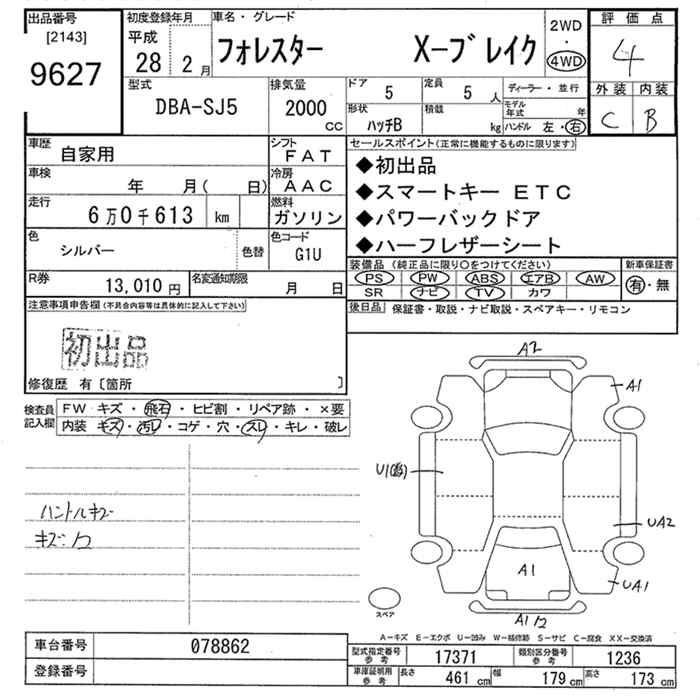 出品番号
[2143]
9627
初度登録年月
平成
28 2月
車名・グレード
フォレスター X-ブレイク
2WD
・
4WD
評価点
4
外装 内装
C B
型式
DBA-SJ5
排気量
2000
CC
ドア
5
定員
5 人
形状
ハッチB
積載
kg
ディーラー・並行
モデル年式 年
ハンドル 左・右
車歴
自家用
シフト
FAT
車検
年 月( 日)
冷房
AAC
走行
6万0千613 km
燃料
ガソリン
色
シルバー
色替
色コード
G1U
R券
13,010円
名変通知期限
月 日
セールスポイント(正常に機能するものに限ります)
◆初出品
◆スマートキー ETC
◆パワーバックドア
◆ハーフレザーシート
装備品(純正品に限り○をつけてください)
PS PW ABS エアB AW
SR ナビ TV カワ
新車保証書
有・無
後日品 保証書・取説・ナビ取説・スペアキー・リモコン
注意事項申告欄(不具合内容等は具体的に記入して下さい)
初出品
修復歴 有〔箇所 〕
検査員記入欄
FW キズ・飛石・ヒビ割・リペア跡・×要
内装 キズ・汚レ・コゲ・穴・スレ・キレ・破レ
ハンドルキズ
キズ・ワ
A2
A1
U1
UA2
A1
UA1
A1ワ
スペア
A-キズ E-エクボ U-凹み W-補修跡 S-サビ C-腐食 XX-交換済
車台番号 078862
登録番号
型式指定番号 参考 17371
類別区分番号 参考 1236
車庫証明用 参考 長さ 461cm 幅 179cm 高さ 173cm